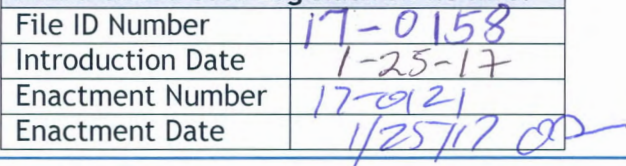 File ID Number 17-0158
Introduction Date 1-25-17
Enactment Number 17-0121
Enactment Date 1/25/17